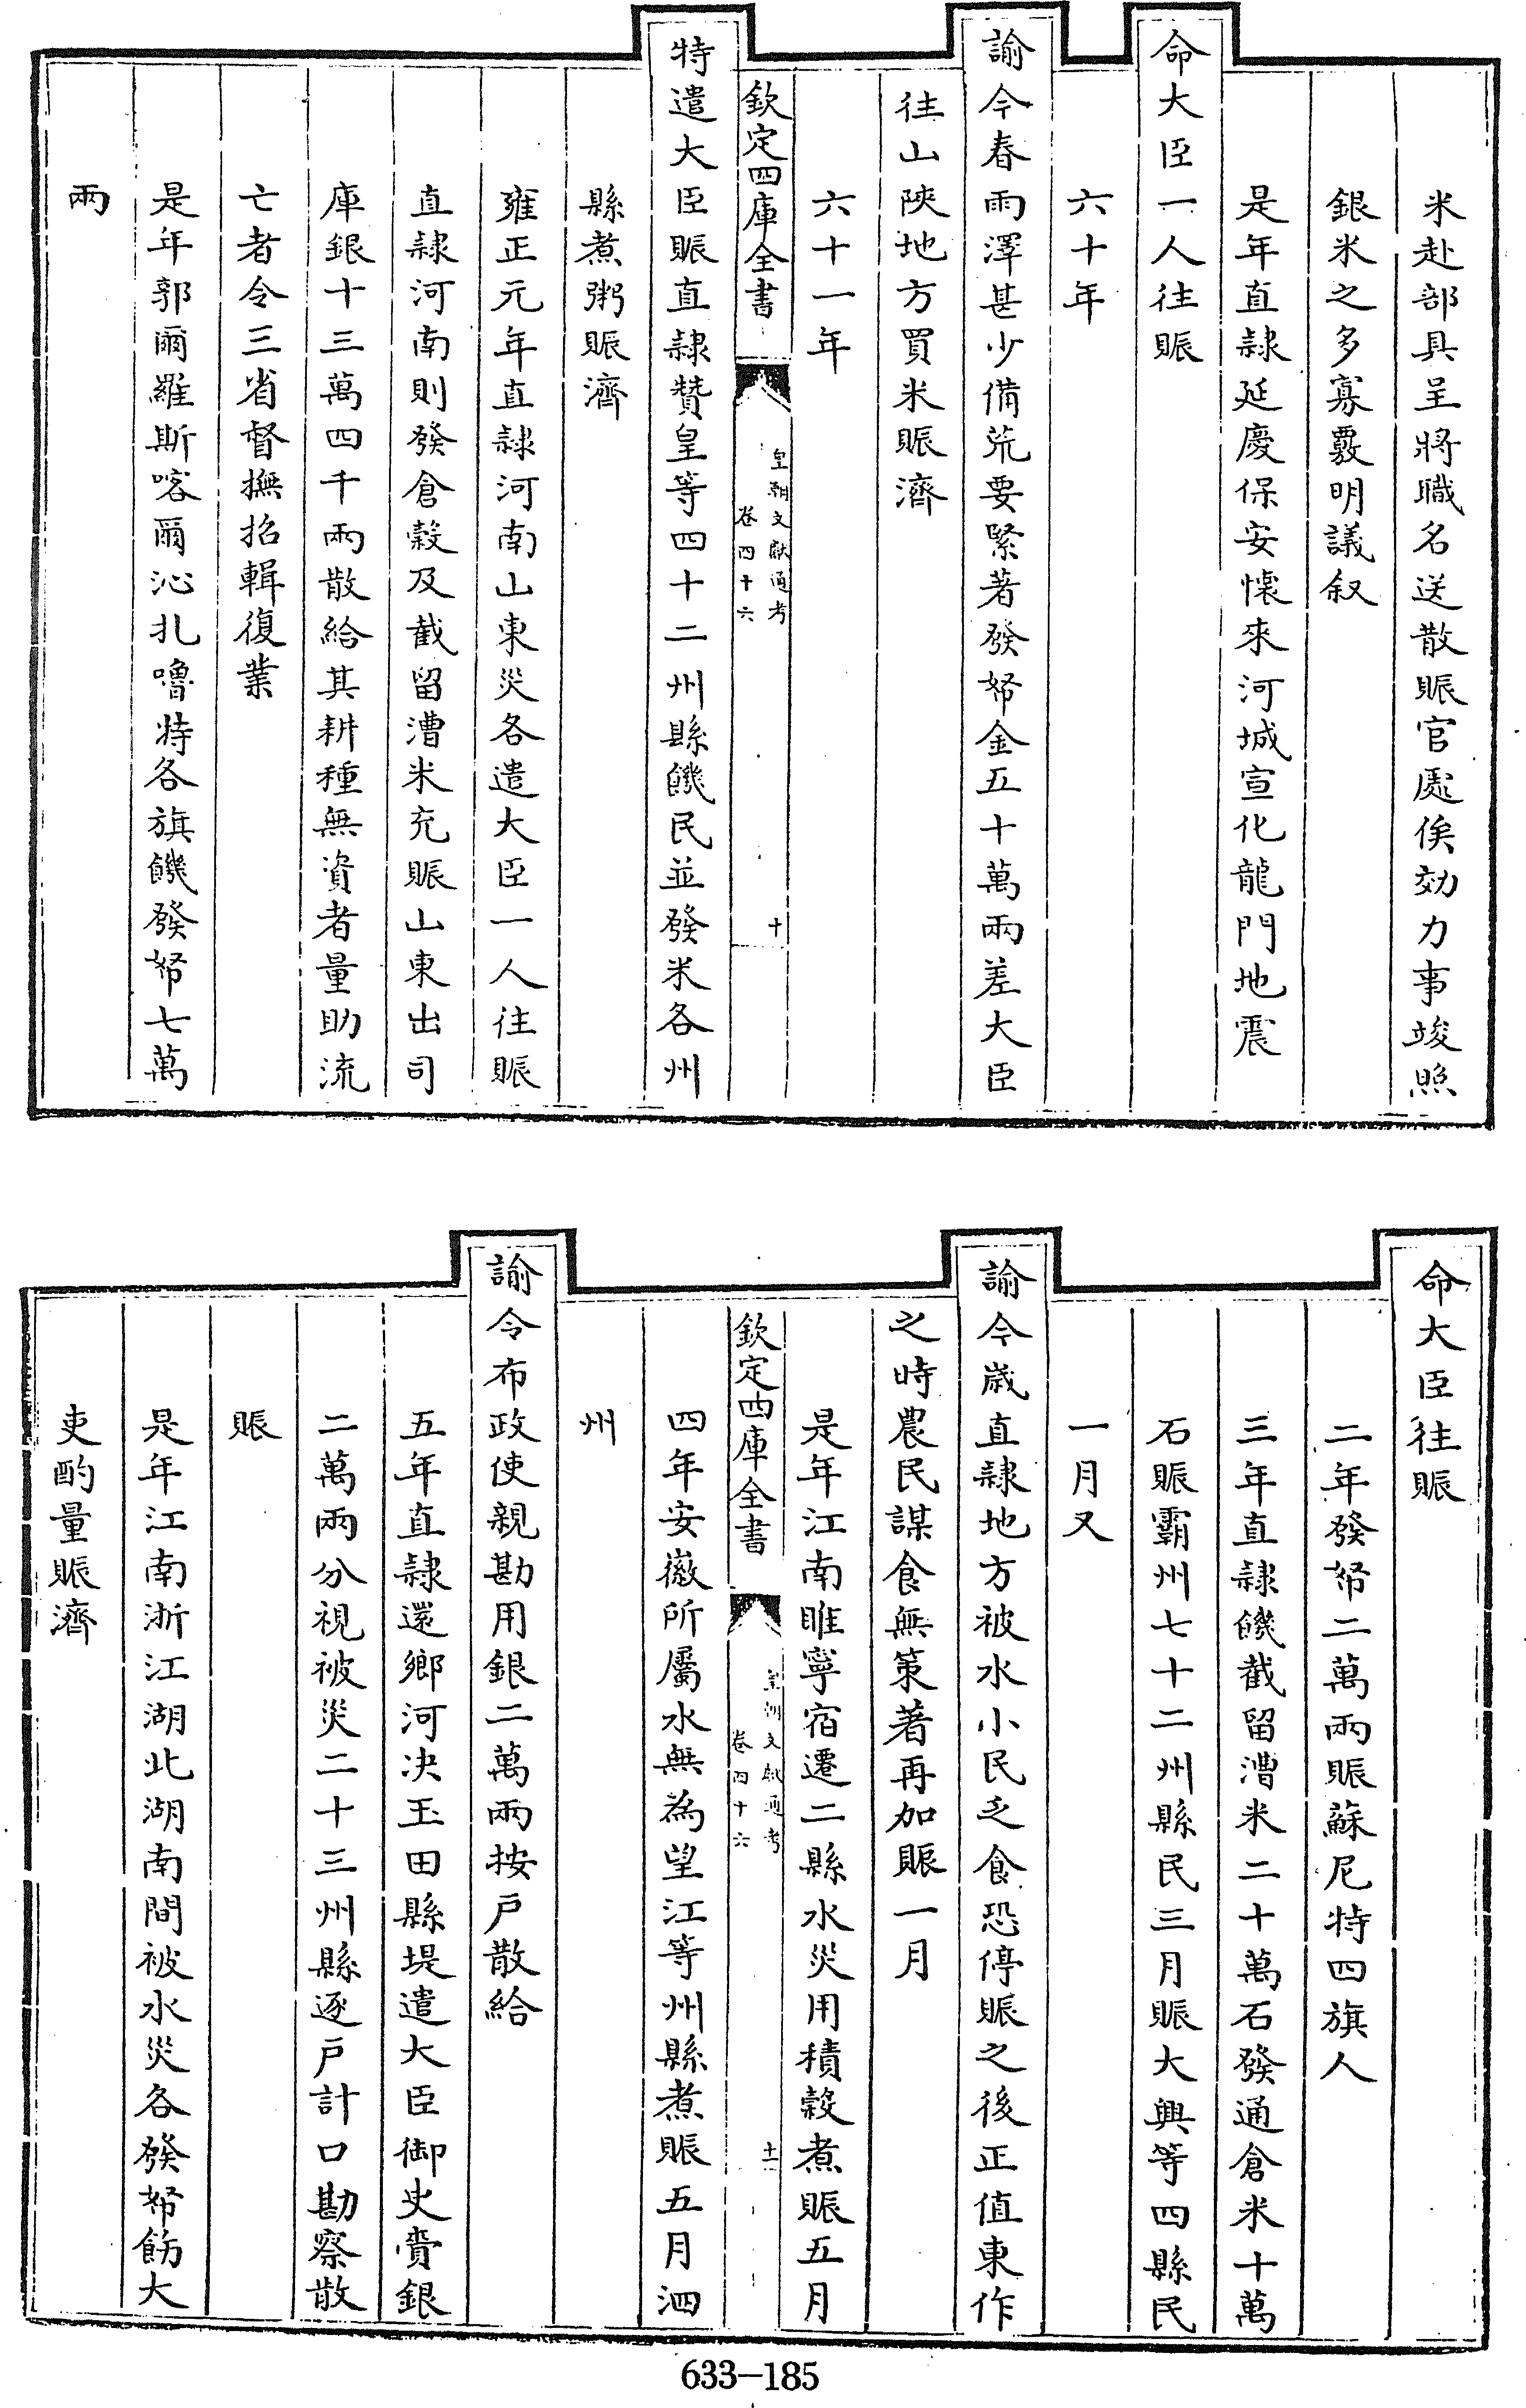 米赴部具呈將職名送散賑官處俟効力事竣照
銀米之多寡覈明議叙
是年直隷延慶保安懷來河城宣化龍門地震
命大臣一人往賑
六十年
諭今春雨澤甚少備荒要緊著發帑金五十萬兩差大臣
往山陜地方買米賑濟
六十一年
欽定四庫全書
皇朝文獻通考
卷四十六
十
特遣大臣賑直隷贊皇等四十二州縣饑民並發米各州
縣煮粥賑濟
雍正元年直隷河南山東災各遣大臣一人往賑
直隷河南則發倉穀及截留漕米充賑山東出司
庫銀十三萬四千兩散給其耕種無資者量助流
亡者令三省督撫招輯復業
是年郭爾羅斯喀爾沁扎嚕特各旗饑發帑七萬
兩
命大臣往賑
二年發帑二萬兩賑蘇尼特四旗人
三年直隷饑截留漕米二十萬石發通倉米十萬
石賑霸州七十二州縣民三月賑大興等四縣民
一月又
諭今歲直隷地方被水小民乏食恐停賑之後正值東作
之時農民謀食無策著再加賑一月
是年江南睢寧宿遷二縣水災用積穀煮賑五月
欽定四庫全書
皇朝文獻通考
卷四十六
十一
四年安徽所屬水無為望江等州縣煮賑五月泗
州
諭令布政使親勘用銀二萬兩按戶散給
五年直隷還鄉河决玉田縣堤遣大臣御史賫銀
二萬兩分視被災二十三州縣逐戶計口勘察散
賑
是年江南浙江湖北湖南間被水災各發帑飭大
吏酌量賑濟
633-185